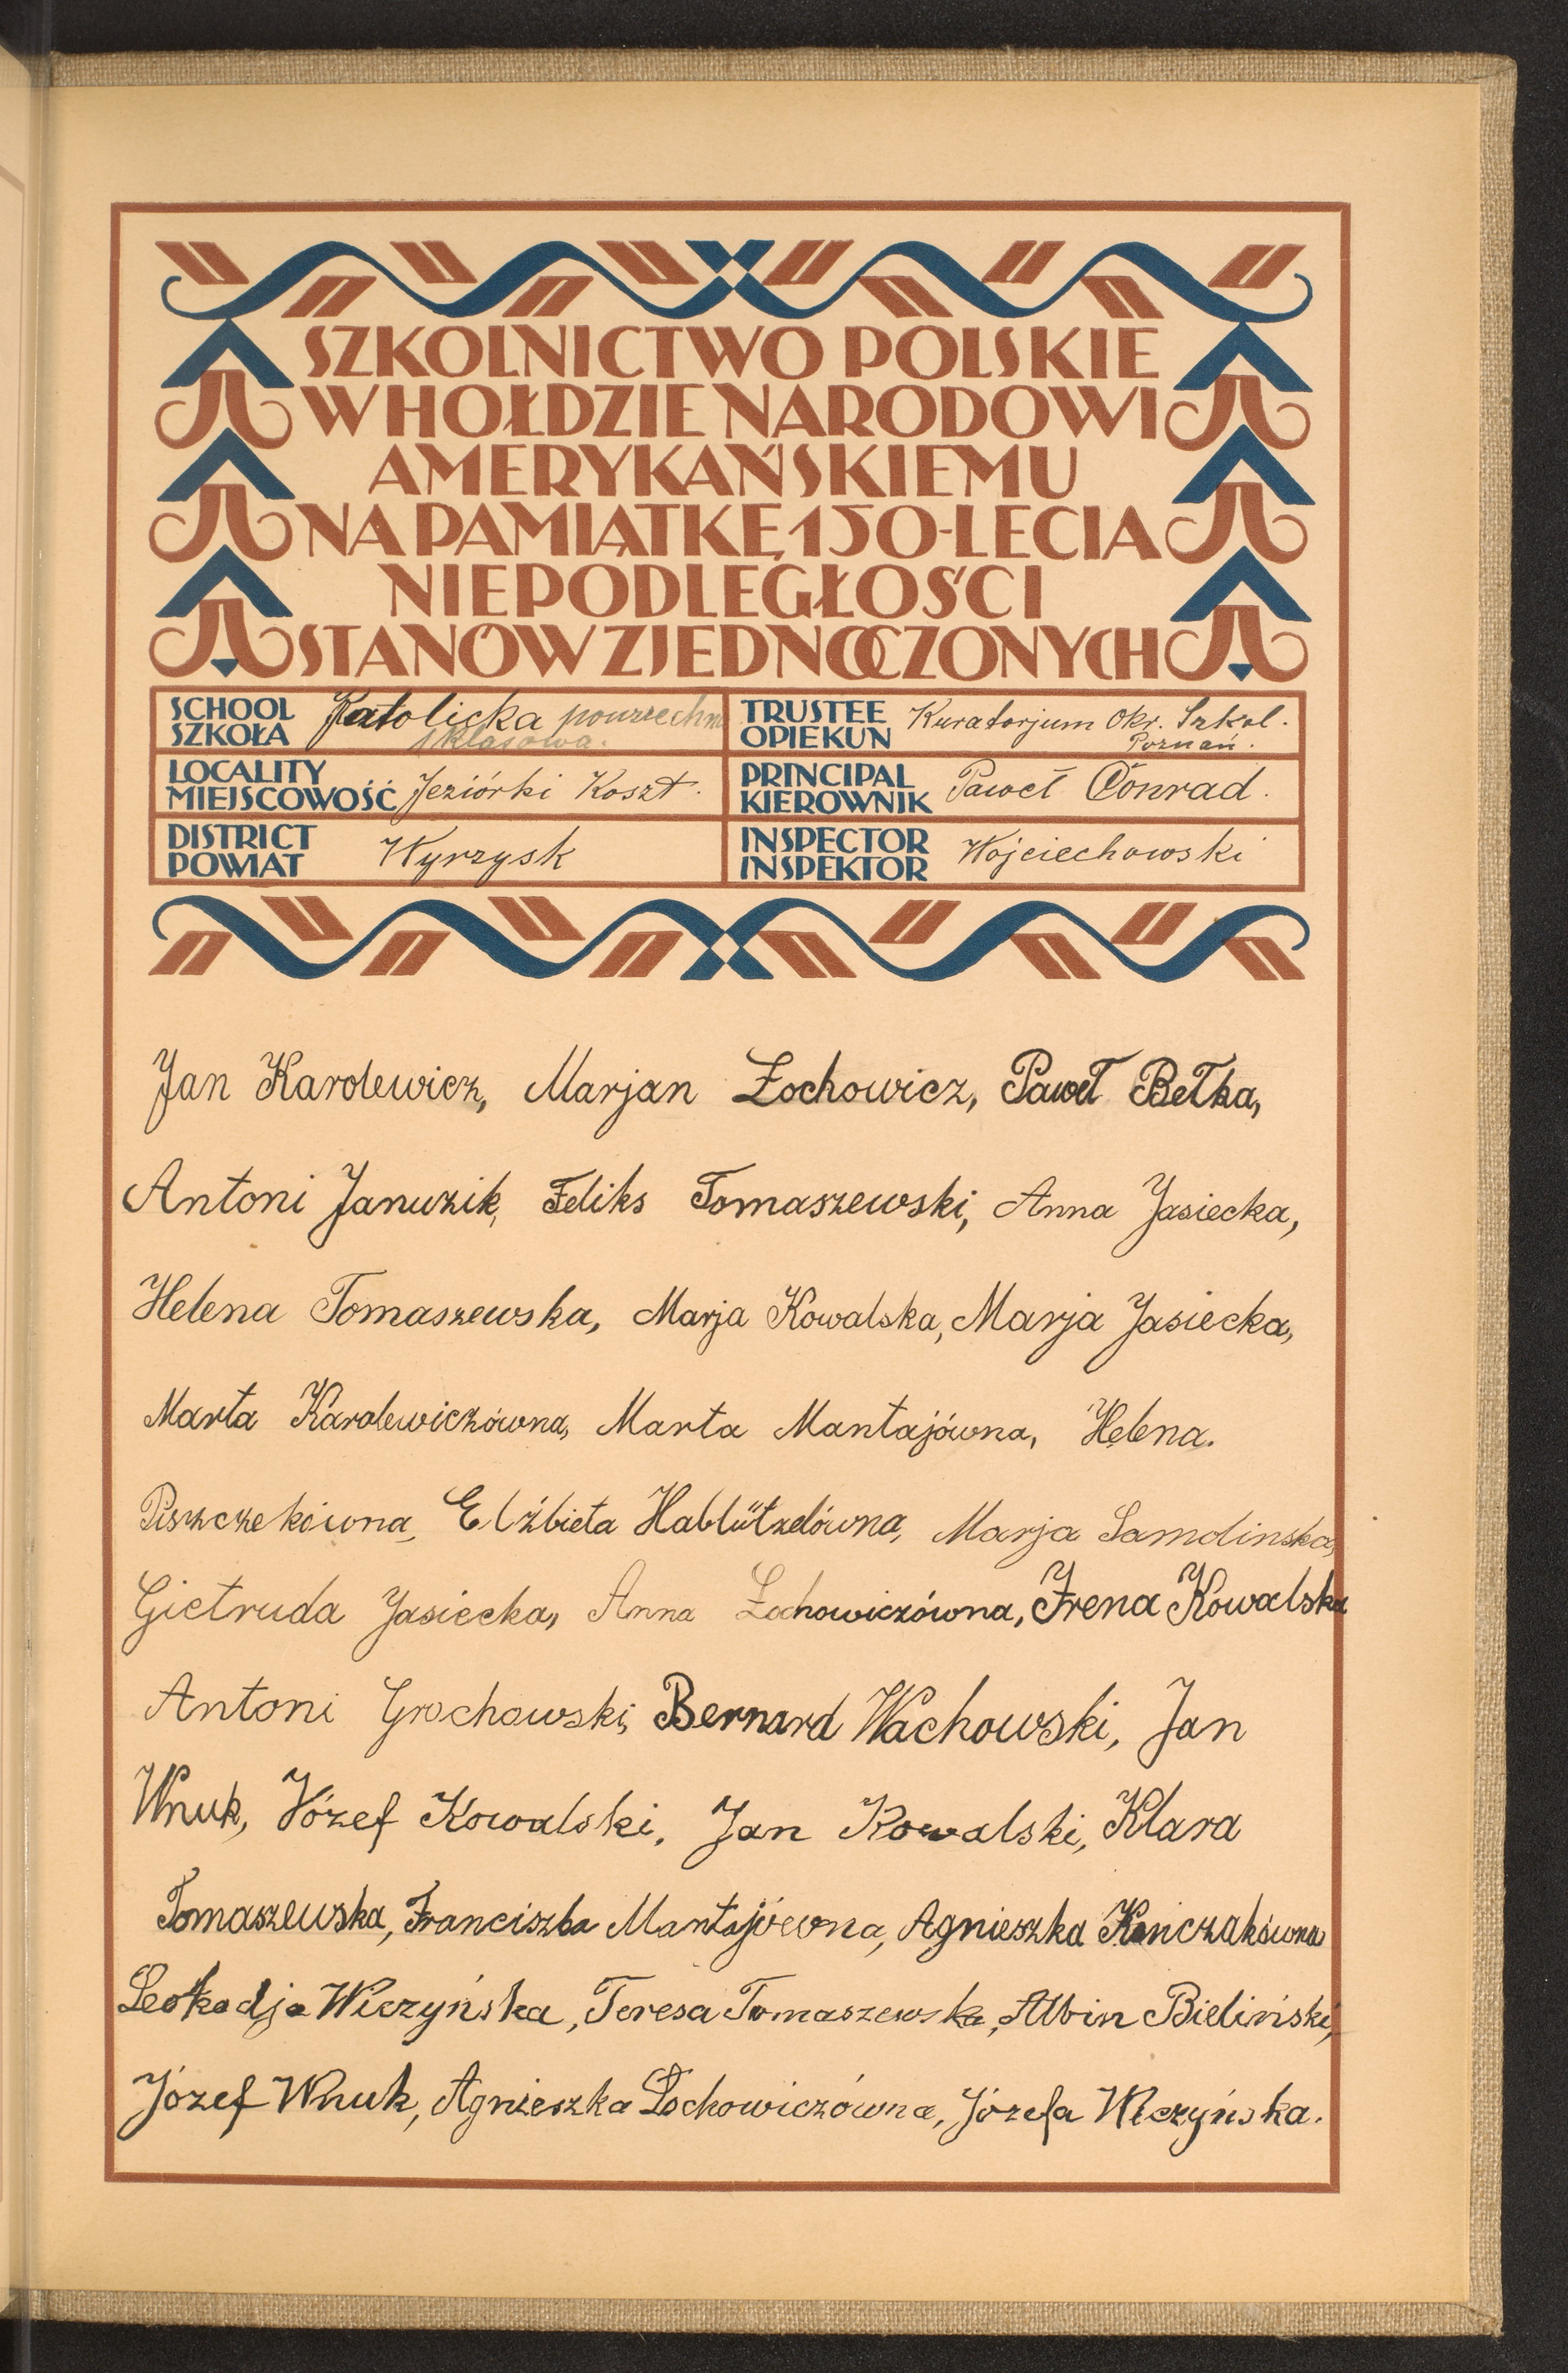 SZKOLNICTWO POLSKIE
W HOŁDZIE NARODOWI
AMERYKAŃSKIEMU
NA PAMIĄTKĘ 150-LECIA
NIEPODLEGŁOŚCI
STANÓW ZJEDNOCZONYCH
SCHOOL
SZKOŁA
Katolicka powszechn
1 klasowa.
TRUSTEE
OPIEKUN
Kuratorjum Okr. Szkol.
Poznań.
LOCALITY
MIEJSCOWOŚĆ
Jeziórki Koszt.
PRINCIPAL
KIEROWNIK
Paweł Conrad.
DISTRICT
POWIAT
Wyrzysk
INSPECTOR
INSPEKTOR
Wojciechowski
Jan Karolewicz, Marjan Żochowicz, Paweł Bełka,
Antoni Januzik, Feliks Tomaszewski, Anna Jasiecka,
Helena Tomaszewska, Marja Kowalska, Marja Jasiecka,
Marta Karolewiczówna, Marta Mantajówna, Helena.
Piszczekówna, Elżbieta Hablützelówna, Marja Samolinska,
Gietruda Jasiecka, Anna Żochowiczówna, Irena Kowalska
Antoni Grochowski, Bernard Wachowski, Jan
Wnuk, Józef Kowalski, Jan Kowalski, Klara
Tomaszewska, Franciszka Mantajówna, Agnieszka Kończakówna
Leokadja Wiczyńska, Teresa Tomaszewska, Albin Bieliński,
Józef Wnuk, Agnieszka Żochowiczówna, Józefa Wiczyńska.